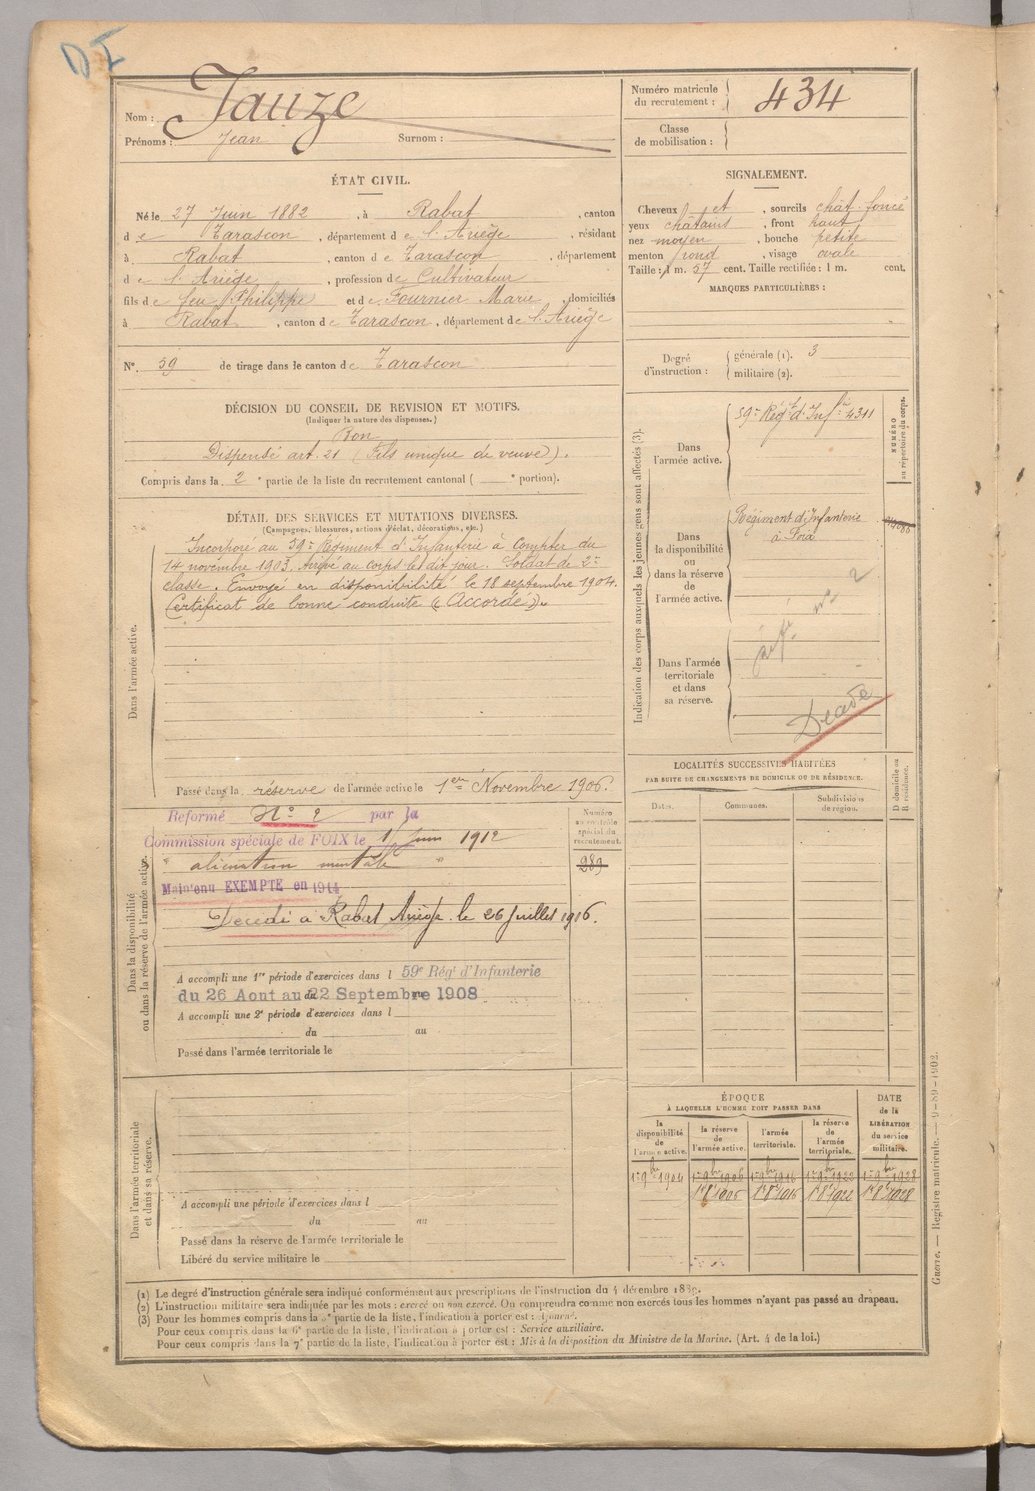 DI
Nom : Jauze
Prénoms : Jean Surnom :
Numéro matricule du recrutement : 434
Classe de mobilisation :
ÉTAT CIVIL.
Né le 27 Juin 1882, à Rabat, canton
de Tarascon, département de l'Ariège, résidant
à Rabat, canton de Tarascon, département
de l'Ariège, profession de Cultivateur
fils de feu Philippe et de Fournier Marie, domiciliés
à Rabat, canton de Tarascon, département de l'Ariège
N° 59 de tirage dans le canton de Tarascon
SIGNALEMENT.
Cheveux et, sourcils chât. foncé
yeux châtains, front haut
nez moyen, bouche petite
menton rond, visage ovale
Taille : 1 m. 57 cent. Taille rectifiée : 1 m. cent.
MARQUES PARTICULIÈRES :
Degré d'instruction : générale (1). 3
militaire (2).
DÉCISION DU CONSEIL DE REVISION ET MOTIFS.
(Indiquer la nature des dispenses.)
Bon
Dispensé art. 21 (Fils unique de veuve).
Compris dans la 2e partie de la liste du recrutement cantonal ( e portion).
DÉTAIL DES SERVICES ET MUTATIONS DIVERSES.
(Campagnes, blessures, actions d'éclat, décorations, etc.)
Dans l'armée active.
Incorporé au 59e Régiment d'Infanterie à compter du
14 novembre 1903. Arrivé au corps le dit jour. Soldat de 2e
classe. Envoyé en disponibilité le 18 septembre 1904.
Certificat de bonne conduite « Accordé ».
Passé dans la réserve de l'armée active le 1er Novembre 1906.
Indication des corps auxquels les jeunes gens sont affectés (3).
NUMÉRO au répertoire du corps.
Dans l'armée active.
59e Régt d'Infie 4311
Dans la disponibilité ou dans la réserve de l'armée active.
Régiment d'Infanterie
à Foix
n° 2
Dans l'armée territoriale et dans sa réserve.
LOCALITÉS SUCCESSIVES HABITÉES
PAR SUITE DE CHANGEMENTS DE DOMICILE OU DE RÉSIDENCE.
Dates. Communes. Subdivisions de région. D domicile ou R résidence.
Dans la disponibilité ou dans la réserve de l'armée active.
Réformé N° 2 par la
Commission spéciale de FOIX le 1 Juin 1912
aliénation mentale
Maintenu EXEMPTE en 1914
Décédé à Rabat Ariège le 26 Juillet 1916.
Numéro au contrôle spécial du recrutement.
983
A accompli une 1re période d'exercices dans l 59e Régt d'Infanterie
du 26 Aout au 22 Septembre 1908
A accompli une 2e période d'exercices dans l
du au
Passé dans l'armée territoriale le
Dans l'armée territoriale et dans sa réserve.
A accompli une période d'exercices dans l
du au
Passé dans la réserve de l'armée territoriale le
Libéré du service militaire le
ÉPOQUE
À LAQUELLE L'HOMME DOIT PASSER DANS
la disponibilité de l'armée active. la réserve de l'armée active. l'armée territoriale. la réserve de l'armée territoriale. DATE de la LIBÉRATION du service militaire.
1er 9bre 1904 1er 9bre 1906 1er 9bre 1916 1er 9bre 1922 1er 9bre 1928
1er 8bre 1906 1er 8bre 1916 1er 8bre 1922 1er 8bre 1928
(1) Le degré d'instruction générale sera indiqué conformément aux prescriptions de l'instruction du 4 décembre 1889.
(2) L'instruction militaire sera indiquée par les mots : exercé ou non exercé. On comprendra comme non exercés tous les hommes n'ayant pas passé au drapeau.
(3) Pour les hommes compris dans la partie de la liste, l'indication à porter est : Ajourné.
Pour ceux compris dans la 6e partie de la liste, l'indication à porter est : Service auxiliaire.
Pour ceux compris dans la 7e partie de la liste, l'indication à porter est : Mis à la disposition du Ministre de la Marine. (Art. 4 de la loi.)
Guerre. — Registre matricule. — 9-89-1902.